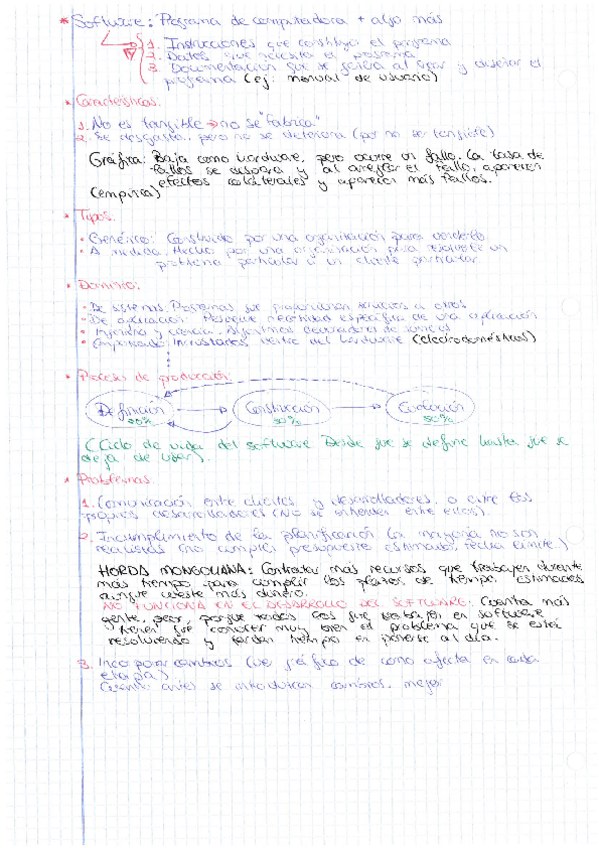 * Software: Programa de computadora + algo más
1. Instrucciones que constituyen el programa
2. Datos que necesita el programa
3. Documentación que se genera al usar y diseñar el
programa (ej: manual de usuario)
* Características:
1. No es tangible → no se "fabrica"
2. Se desgasta, pero no se deteriora (por no ser tangible)
Gráfica: Baja como hardware, pero ocurre un fallo. La tasa de
fallos se dispara y al arreglar el fallo, aparecen
efectos colaterales y aparecen más fallos.
(empírica)
* Tipos:
• Genérico: Construido por una organización para venderlo
• A medida: Hecho por una organización para resolverle un
problema particular a un cliente particular
* Dominio:
• De sistemas: Programas que proporcionan servicios a otros
• De aplicación: necesidad específica de una aplicación
• Ingeniería y ciencia: Algoritmos devoradores de
• Empotrado: Incrustados dentro del hardware (electrodomésticos)
* Proceso de producción:
Definición Construcción Evolución
20% 30% 50%
(Ciclo de vida del software Desde que se define hasta que se
deja de usar).
* Problemas:
1. Comunicación entre clientes y desarrolladores, o entre los
propios desarrolladores (No se entienden entre ellos).
2. Incumplimiento de la planificación (la mayoría no son
realistas (no cumplen presupuesto estimado, fecha límite..)
HORDA MONGOLIANA: Contratar más recursos que trabajen durante
más tiempo para cumplir los plazos de tiempo estimados
aunque cueste más dinero.
NO FUNCIONA EN EL DESARROLLO DEL SOFTWARE: Cuanta más
gente, peor, porque todos los que trabajan en software
tienen que conocer muy bien el problema que se está
resolviendo y tardan tiempo en ponerse al día.
3. Incorporar cambios (ver gráfico de como afecta en cada
etapa)
Cuanto antes se introduzcan cambios, mejor